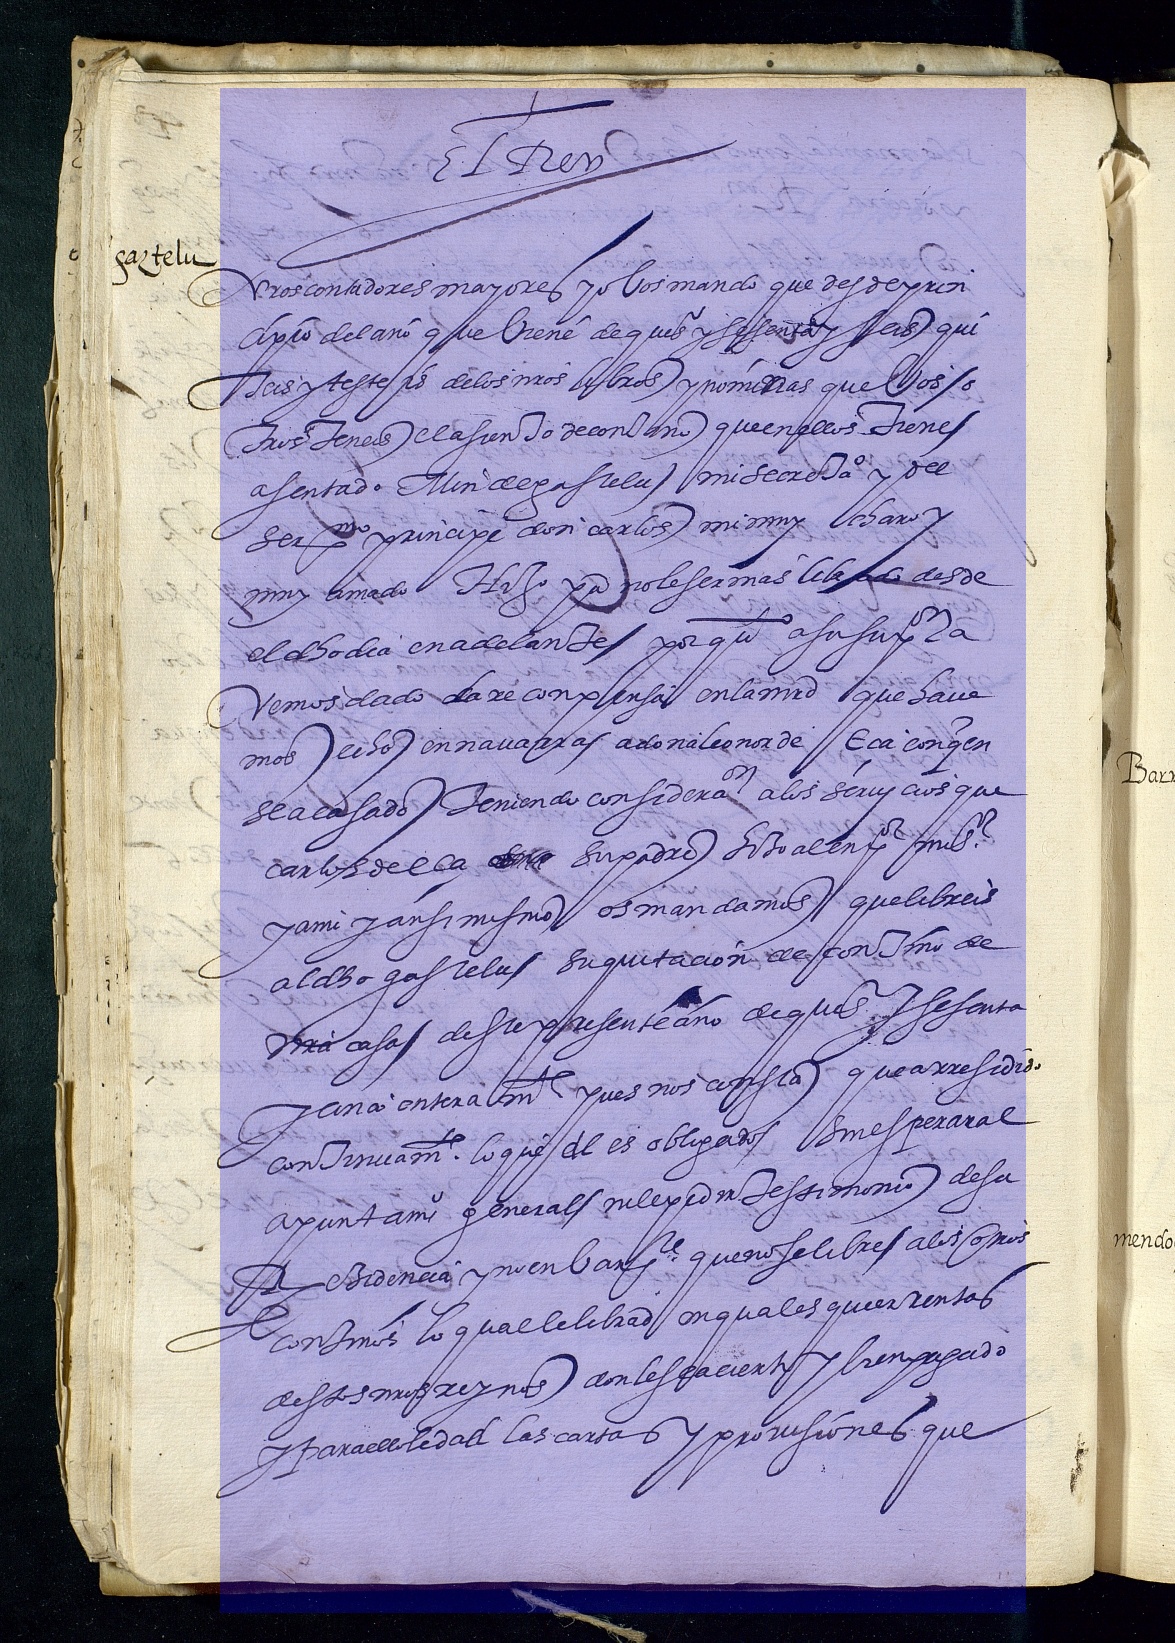 El Rey
gaztelu
nros contadores mayores yo vos mando que desde prin
cipio del año que viene de qui&ordm;s y sesenta y seis qui
teis y testeis de los nros libros y nominas que vos o
tros teneis el asiento de contino que en ellos tiene
asentado Min de gastelu mi secretaº y del
serꝑmo principe don carlos mi muy charo y
muy amado hijo pa no le ser mas librado desde
el dho dia en adelante por qto a su supon la
hemos dado la recompensa en la mrd que have
mos hecho en navarra a dona leonor de Eça con qen
sea casado teniendo consideraon a los servicios que
carlos de Eça su padre hizo al empor mi sor
y a mi y ansi mesmo os mandamos que libreis
al dho gastelu su quitacion de contino de
nra casa deste presente año de quios y sesenta
y cinco entera mte pues nos consta que a rresidido
continuamte lo que el es obligado sin esperar al
apuntamio general ni le pedir testimonio de su
Residencia y no enbargte que no se libre a los otros
continos lo qual le librad en quales quier rentas
destos nros reynos donle sea cierto y bien pagado
y para ello le dad las cartas y provisiones que
Barr
mendo